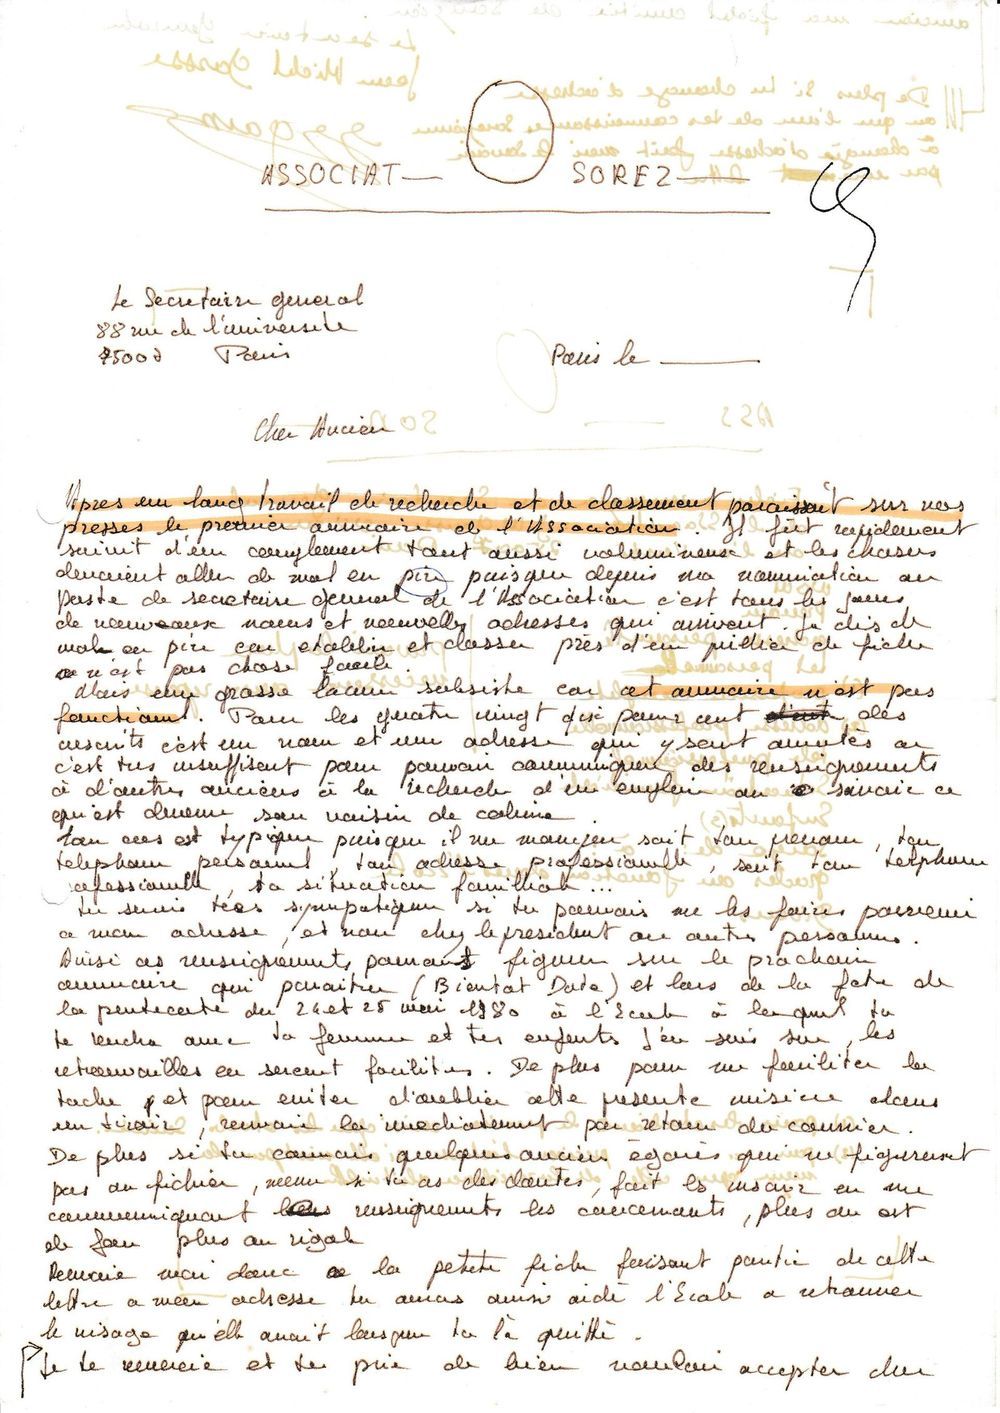 ASSOCIAT— SOREZ—
Le Secretaire general
88 rue de l'universite
75007 Paris
Paris le
Cher Ancien
Apres un long travail de recherche et de classement paraissait sur nos
presses le premier annuaire de l'Association. Il fût rapidement
suivit d'un complement tout aussi volumineux et les choses
devaient aller de mal en pire puisque depuis ma nomination au
poste de secretaire general de l'Association c'est tous les jours
de nouveaux noms et nouvelles adresses qui arrivent. Je dis de
mal en pire car etablir et classer près d'un millier de fiche
n'est pas chose facile.
Mais une grosse lacune subsiste car cet annuaire n'est pas
fonctionnel. Pour les quatre vingt dix pour cent des
inscrits c'est un nom et une adresse qui y sont annotés or
c'est tres insuffisant pour pouvoir communiquer des renseignements
à d'autres anciens à la recherche d'un emploi ou savoir ce
qu'est devenu son voisin de cabine.
Ton cas est typique puisque il me manque soit ton prenom, ton
telephone personnel, ton adresse professionnelle, soit ton telephone
professionnelle, ta situation familliale...
Tu serais tres sympatique si tu pouvais me les faire parvenir
a mon adresse, et non chez le president ou autres personnes.
Ainsi ces renseignements pourront figurer sur le prochain
annuaire qui paraitra (Bientot Date) et lors de la fete de
la pentecote du 24 et 25 mai 1980 à l'Ecole à laquelle tu
te rendra avec ta femme et tes enfants j'en suis sur, les
retrouvailles en seront facilites. De plus pour me faciliter la
tache, et pour eviter d'oublier cette presente missive dans
un tiroir, renvoie la imediatement par retour du courrier.
De plus si tu connais quelques ancien égarés qui ne figureraient
pas au fichier, meme si tu as des doutes, fait le savoir en me
communiquant les renseignements les concernants, plus on est
de fou plus on rigole
Renvoie moi donc la petite fiche faisant partie de cette
lettre a mon adresse tu auras ainsi aidé l'Ecole a retrouver
le visage qu'elle avait lorsque tu l'à quitté.
Je te remercie et te prie de bien vouloir accepter cher